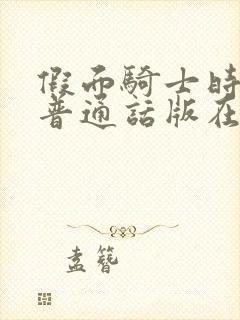 假面騎士時
普通話版在
孟簪